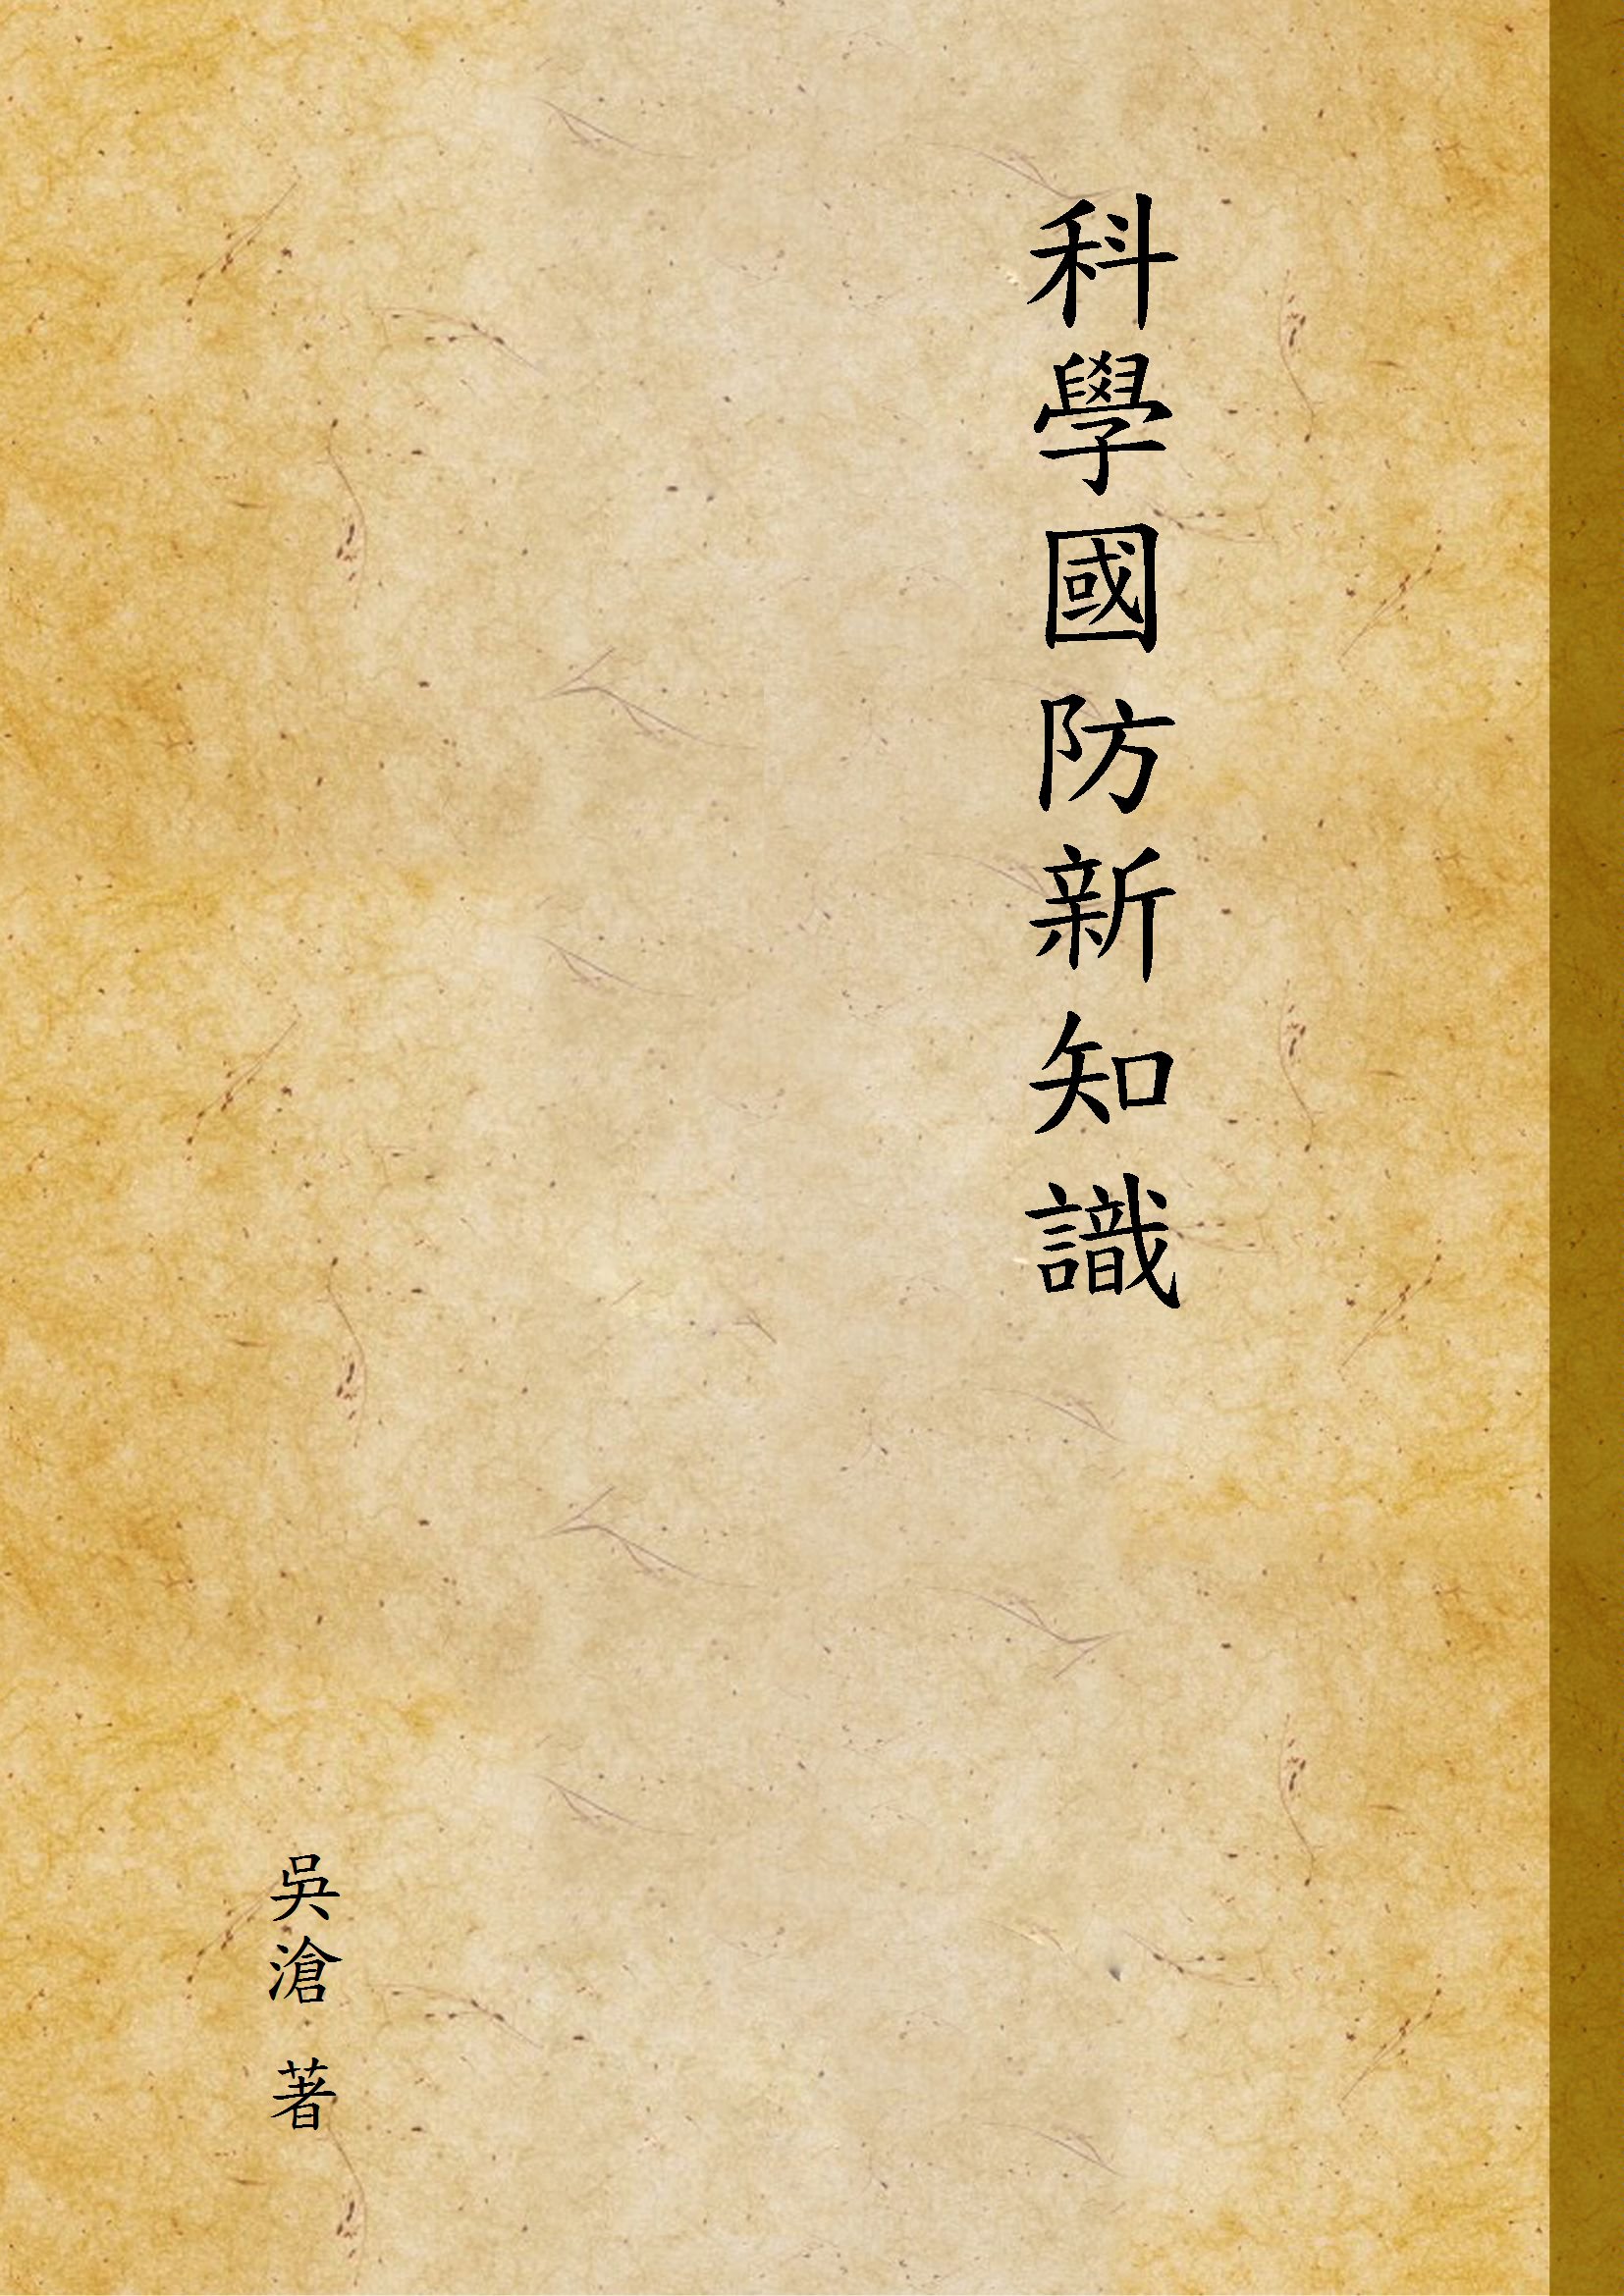 科學國防新知識
吳滄 著